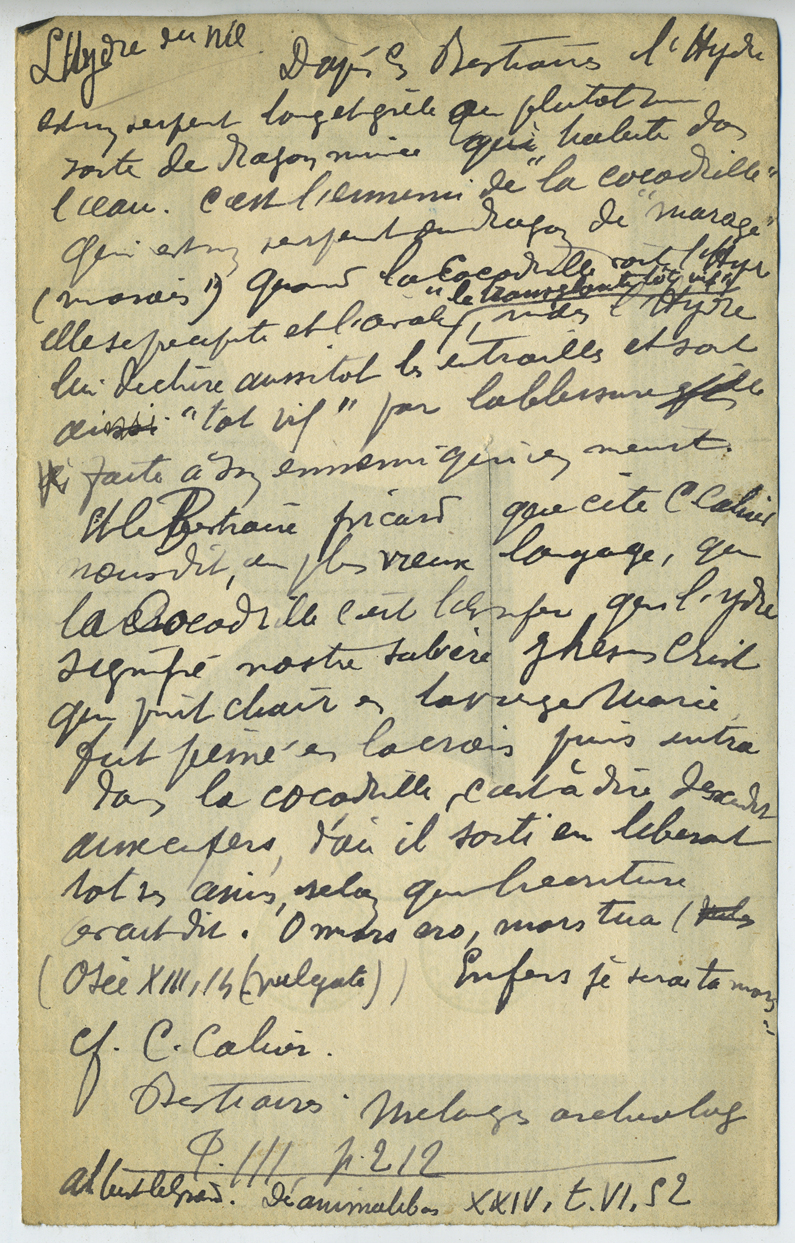 L'Hydre du Nil. D'après les Bestiaires l'Hydre
est un serpent long et grêle ou plutôt une
sorte de dragon mince qui habite dans
l'eau. C'est l'ennemi de "la cocodrille"
qui est un serpent ou dragon de "marage"
(marais") quand la Cocodrille voit l'Hydre
"le transgloute tôt vif"
elle se précipite et l'avale, mais l'Hydre
lui déchire aussitot les entrailles et sort
ainssi "tot vif" par la blessure
faite à son ennemi qui en meurt.
Et le Bestiaire picard que cite C Cahier
nous dit, en plus vieux langage, que
la Cocodrille c'est l'Enfer, que l'ydre
segnifie nostre salvère Jhesus Crist
qui prit chair en la vierge Marie
fut peiné en la crois puis entra
dans la cocodrille, c'est à dire descendit
aux enfers, d'où il sorti en liberant
tot ses amis, selon que l'ecriture
avait dit. O mors ero, mors tua
(Osée XIII, 14 (vulgate)) Enfers je serai ta mors
cf. C. Cahier.
Bestiaires. Melanges archeolog
T. III, p. 212
Albert le Grand. De animalibus XXIV, t. VI, 52